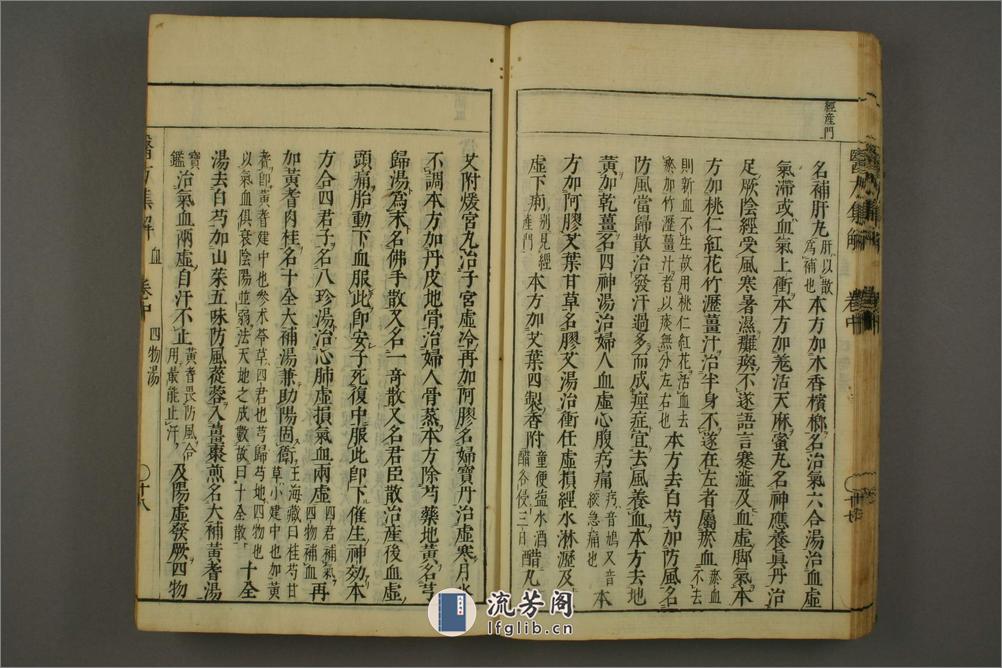 經産門
名補肝丸肝以散爲補也本方加木香檳榔名治氣六合湯治血虛
氣滯或血氣上衝本方加羌活天麻蜜丸名神應養真丹治
足厥陰經受風寒暑濕癱瘓不遂語言蹇澁及血虛脚氣本
方加桃仁紅花竹瀝薑汁治半身不遂在左者屬瘀血瘀血不去
則新血不生故用桃仁紅花活血去瘀加竹瀝薑汁者以痰無分左右也本方去白芍加防風名
防風當歸散治發汗過多而成痙症宜去風養血本方去地
黄加乾薑名四神湯治婦人血虛心腹㽲痛㽲音鳩又音絞急痛也本
方加阿膠艾葉甘草名膠艾湯治衝任虛損經水淋瀝及血
虛下痢別見經産門本方加艾葉四製香附童便塩水酒醋各浸三日醋丸名
艾附煖宮丸治子宮虛冷再加阿膠名婦寶丹治虛寒月水
不調本方加丹皮地骨治婦人骨蒸本方除芍藥地黄名芎
歸湯爲末名佛手散又名一奇散又名君臣散治産後血虛
頭痛胎動下血服此即安子死復中服此即下催生神效本
方合四君子名八珍湯治心肺虛損氣血兩虛四君補氣四物補血再
加黄耆肉桂名十全大補湯兼助陽固衛王海藏曰桂芍甘草小建中也加黄
耆即黄耆建中也參术苓草四君也芎歸芍地四物也以氣血俱衰陰陽並弱法天地之成數故曰十全散十全
湯去白芍加山茱五味防風蓯蓉入薑棗煎名大補黄耆湯
寶鑑治氣血兩虛自汗不止黄耆畏防風合用最能止汗及陽虛發厥四物
醫方集解 血 卷中 四物湯 十八
流芳阁
lfglib.cn